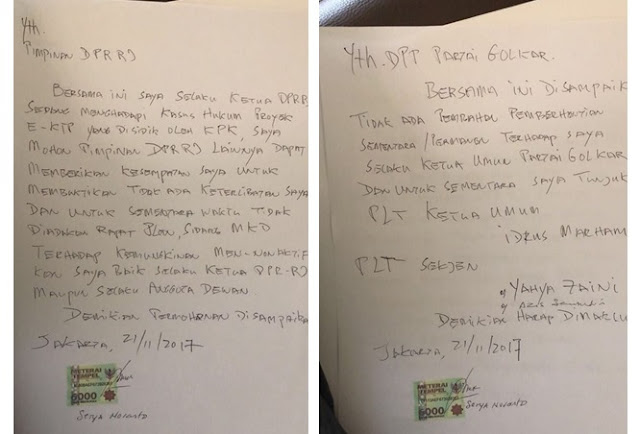 Yth.
PIMPINAN DPR RI
BERSAMA INI SAYA SELAKU KETUA DPR RI
SEDANG MENGHADAPI KASUS HUKUM PROYEK
E-KTP YANG DISIDIK OLEH KPK, SAYA
MOHON PIMPINAN DPR RI LAINNYA DAPAT
MEMBERIKAN KESEMPATAN SAYA UNTUK
MEMBUKTIKAN TIDAK ADA KETERLIBATAN SAYA
DAN UNTUK SEMENTARA WAKTU TIDAK
DIADAKAN RAPAT PLENO, SIDANG MKD
TERHADAP KEMUNGKINAN MEN-NONAKTIF
KAN SAYA BAIK SELAKU KETUA DPR-RI
MAUPUN SELAKU ANGGOTA DEWAN
DEMIKIAN PERMOHONAN DISAMPAIKA
JAKARTA, 21/11/2017
METERAI
TEMPEL
6000
Setya Novanto
Yth. DPP PARTAI GOLKAR.
BERSAMA INI DISAMPAIK
TIDAK ADA PEMBAHASAN PEMBERHENTIAN
SEMENTARA/PERMANEN TERHADAP SAYA
SELAKU KETUA UMUM PARTAI GOLKAR
DAN UNTUK SEMENTARA SAYA TUNJUK
PLT KETUA UMUM
IDRUS MARHAM
PLT SEKJEN
YAHYA ZAINI
DEMIKIAN HARAP DIMAKLU
JAKARTA, 21/11/2017
METERAI
TEMPEL
6000
Setya Novanto